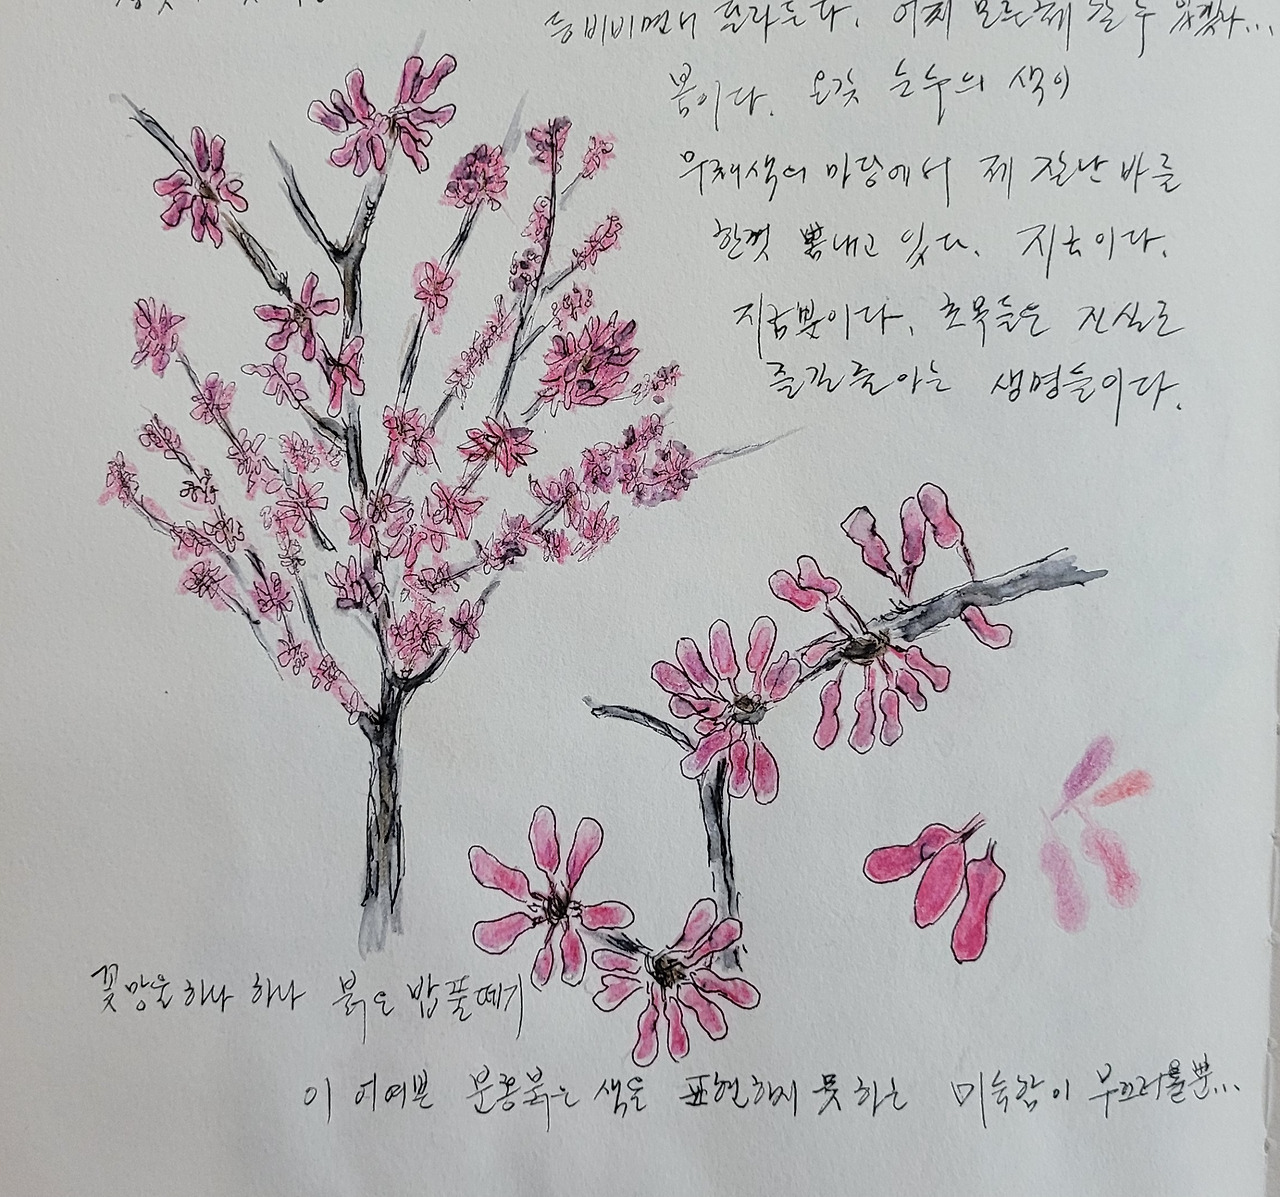 비비면서 달라든다. 어찌 모른체 할 수 있겠나...
봄이다. 온갖 눈누의 색이
무채색의 마당에서 제 잘난 바를
한껏 뽐내고 있다. 지금이다.
지금뿐이다. 초목들은 진실로
즐길줄아는 생명들이다.
꽃망울 하나 하나 붉은 밥풀떼기
이 어여쁜 분홍붉은 색을 표현하지 못하는 미숙함이 부끄러울뿐...